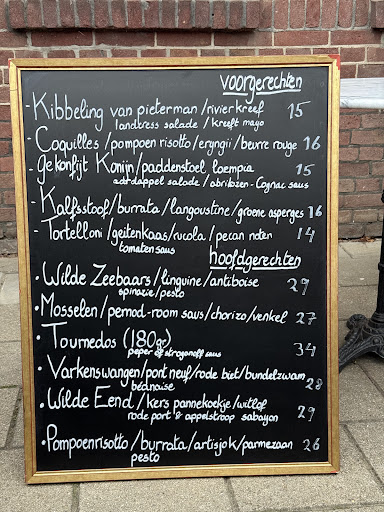 voorgerechten
- Kibbeling van pieterman / rivierkreef 15
landcress salade / kreeft mayo
- Coquilles / pompoen risotto / eryngii / beurre rouge 16
- gekonfijt Konijn / paddenstoel loempia 15
aardappel salade / abrikozen - Cognac saus
- Kalfsstoof / burrata / langoustine / groene asperges 16
- Tortelloni / geitenkaas / rucola / pecan noten 14
tomaten saus
hoofdgerechten
• Wilde Zeebaars / linguine / antiboise 29
spinazie / pesto
• Mosselen / pernod-room saus / chorizo / venkel 27
• Tournedos (180gr) 34
peper of stroganoff saus
• Varkenswangen / pont neuf / rode biet / bundelzwam 28
béarnaise
• Wilde Eend / kers pannekoekje / witlof 29
rode port & appelstroop sabayon
• Pompoenrisotto / burrata / artisjok / parmezaan 26
pesto